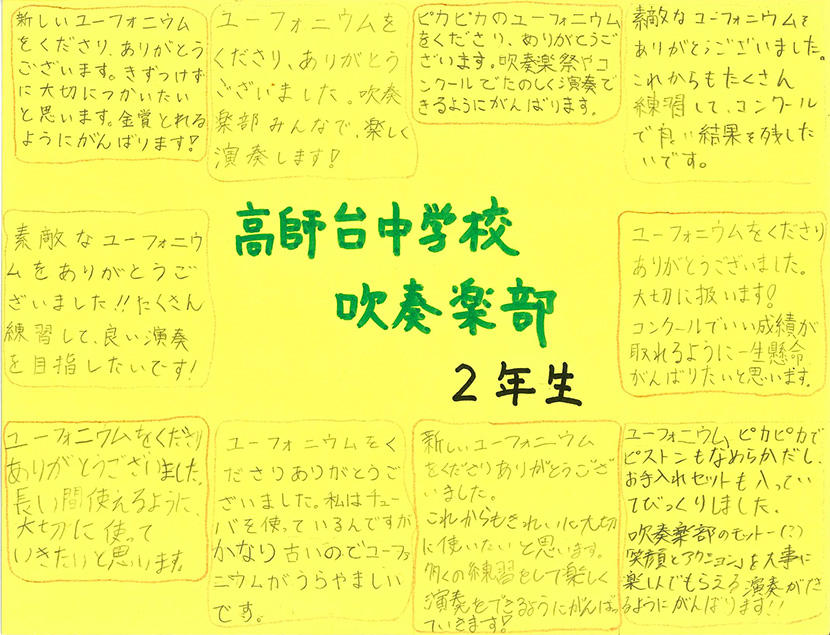 新しいユーフォニウム
をくださり、ありがとう
ございます。きずつけず
に大切につかいたい
と思います。金賞とれる
ようにがんばります!
ユーフォニウムを
くださり、ありがとう
ございました。吹奏
楽部みんなで、楽しく
演奏します!
ピカピカのユーフォニウム
をくださり、ありがとうご
ざいます。吹奏楽祭やコ
ンクールでたのしく演奏で
きるようにがんばります。
素敵なユーフォニウムを
ありがとうございました。
これからもたくさん
練習して、コンクール
で良い結果を残した
いです。
高師台中学校
吹奏楽部
2年生
素敵なユーフォニウ
ムをありがとうご
ざいました!!たくさん
練習して、良い演奏
を目指したいです!
ユーフォニウムをくださり
ありがとうございました。
大切に扱います!
コンクールでいい成績が
取れるように一生懸命
がんばりたいと思います。
ユーフォニウムをくださり
ありがとうございました。
長い間使えるように、
大切に使って
いきたいと思います。
ユーフォニウムをく
ださりありがとうご
ざいました。私はチュー
バを使っているんですが
かなり古いのでユーフォ
ニウムがうらやましい
です。
新しいユーフォニウム
をくださりありがとうござ
いました。
これからもきれいに大切
に使いたいと思います。
多くの練習をして楽しく
演奏をできるようにがんばっ
ていきます!
ユーフォニウム、ピカピカで
ピストンもなめらかだし、
お手入れセットも入ってい
てびっくりしました。
吹奏楽部のモットー(?)
「笑顔とアクション」を大事に
楽しんでもらえる演奏ができ
るようにがんばります!!